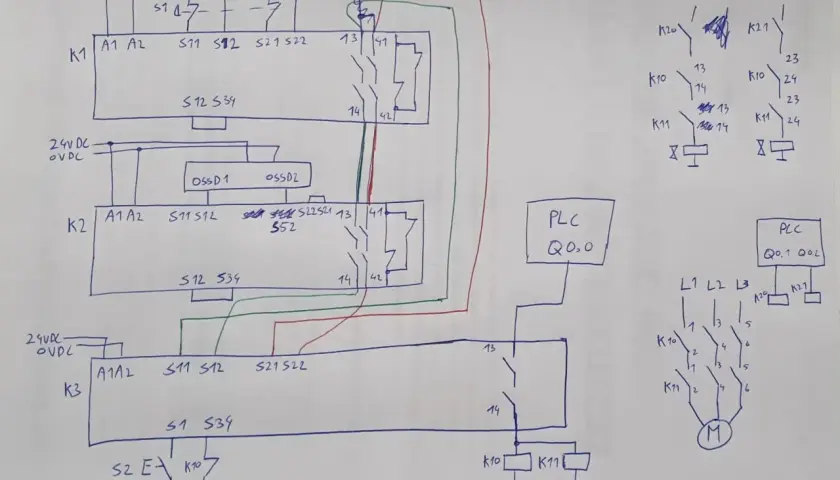 S1
K1 A1 A2 S11 S12 S21 S22 13 41
S12 S34 14 42
24VDC
0VDC
OSSD1 OSSD2
K2 A1 A2 S11 S12 S22 S21 13 41
S52
S12 S34 14 42
24VDC
0VDC
K3 A1 A2 S11 S12 S21 S22 13
14
S1 S34
S2 E K10 K10 K11
PLC
Q0.0
K20 K21
K10 13 14 K10 23 24
K11 13 14 K11 23 24
PLC
Q0.1 Q0.2
K20 K21
L1 L2 L3
K10 1 2 3 4 5 6
K11 1 2 3 4 5 6
M